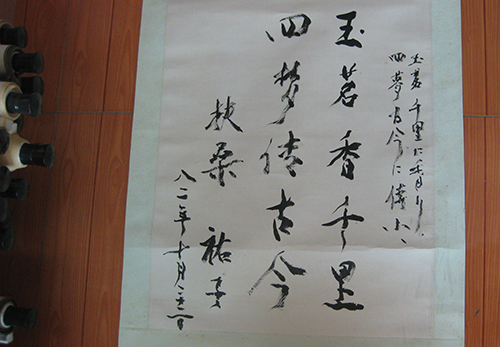 玉茗千里に香り
四夢古今に傳ふ
玉茗香千里
四梦传古今
扶桑 祐
八二年十月